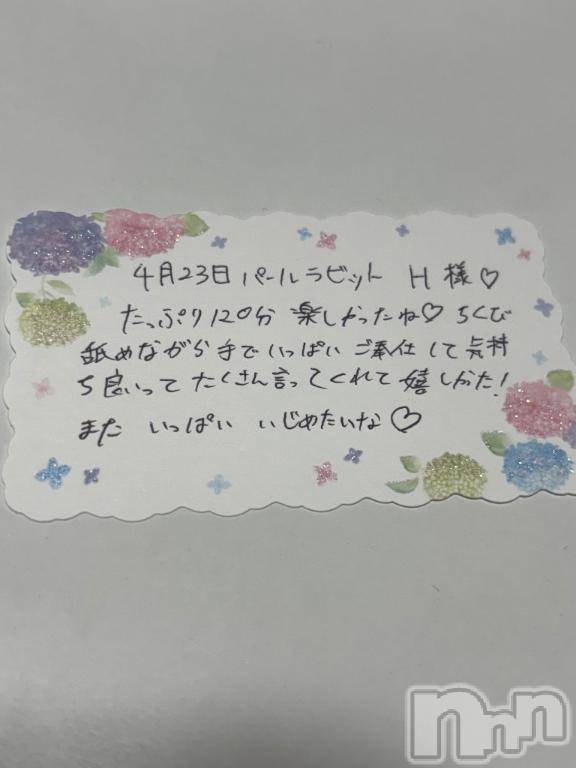 4月23日 パールラビット H様♡
たっぷり120分 楽しかったね♡ ちくび
舐めながら手でいっぱいご奉仕して気持
ち良いってたくさん言ってくれて嬉しかた!
また いっぱい いじめたいな♡
nnn